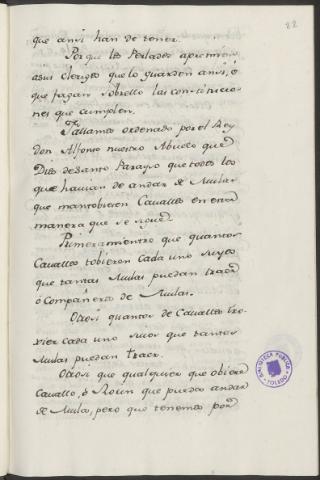 22
que ansi han de tener.
Porque los Perlados apremien
a sus Clerigos que lo guarden ansi, ó
que fagan sobrello las constitucio-
nes que cumplen.
Fallamos ordenado por el Rey
don Alfonso nuestro Abuelo que
Dios de Santo Parayso que todos los
que havian de andar de Mulas
que mantobieren Cavallos en esta
manera que se sigue.
Primeramientre que quantos
Cavallos tobieren cada uno suyos
que tantas Mulas puedan traer
ó Compañeros de Mulas.
Otrosi quantos de Cavallos tro-
xier cada uno suios que tantas
Mulas puedan traer.
Otrosi que qualquier que obiere
Cavallo, ó Rocin que pueda andar
de Mula, pero que tenemos por
BIBLIOTECA PUBLICA
TOLEDO